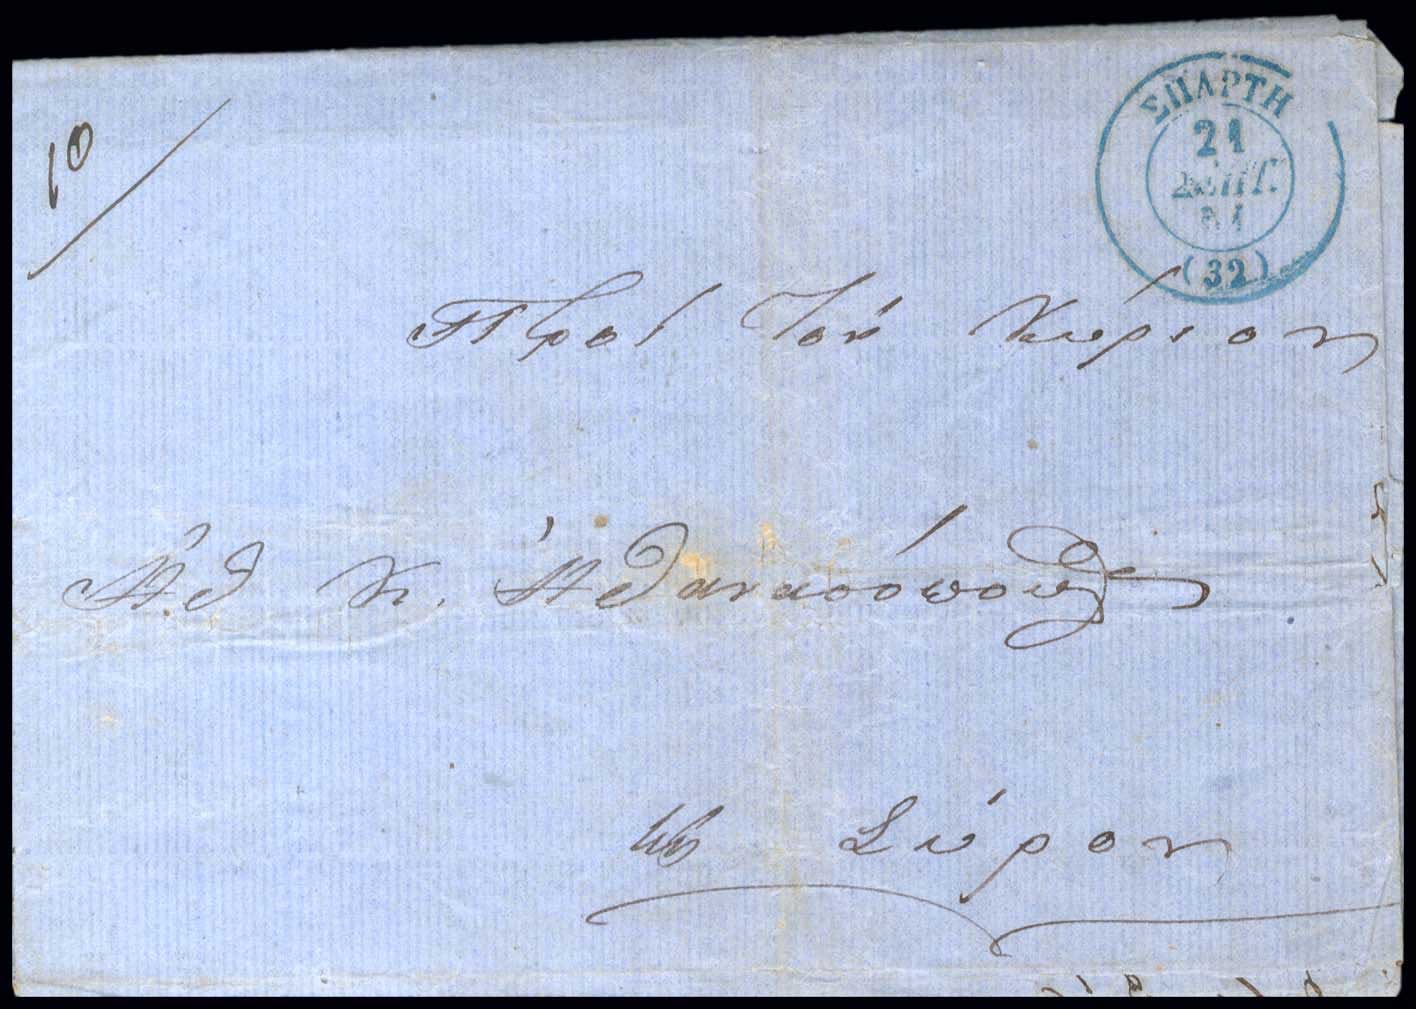 10
ΣΠΑΡΤΗ
21
ΣΕΠΤ.
61
(32)
Πρὸς Τὸν Κύριον
Ἀθ Κ. Ἀθανασόπουλον
εἰς Σύρον